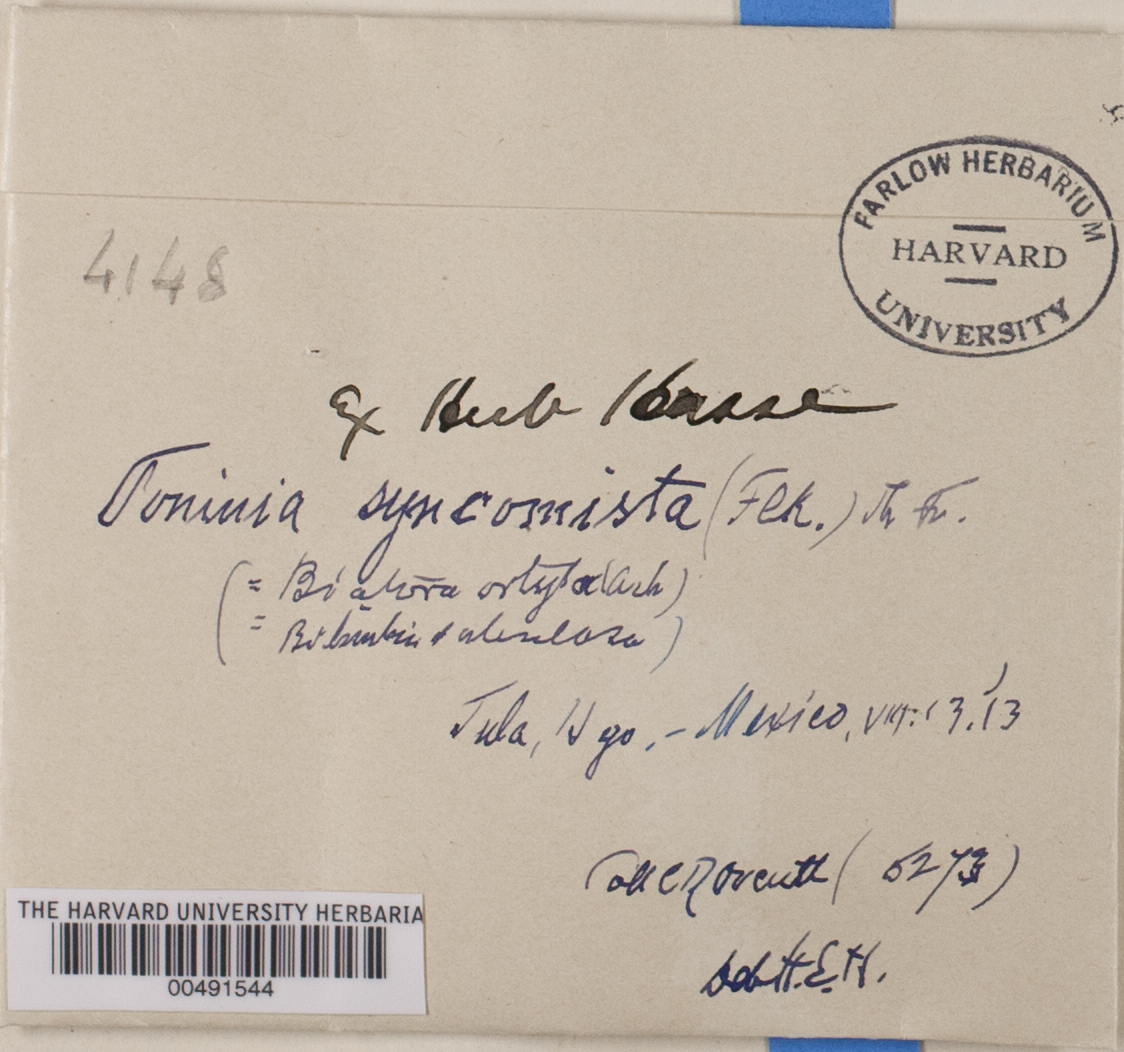 FARLOW HERBARIUM
HARVARD
UNIVERSITY
4148
Ex Herb Hasse
Toninia syncomista (Flk.) Th Fr.
(= Biatora
= Bilimbia sabulosa)
Tula, Hgo, - Mexico, VIII.13.'13
Coll C R Orcutt (5273)
Det H.E.H.
THE HARVARD UNIVERSITY HERBARIA
00491544